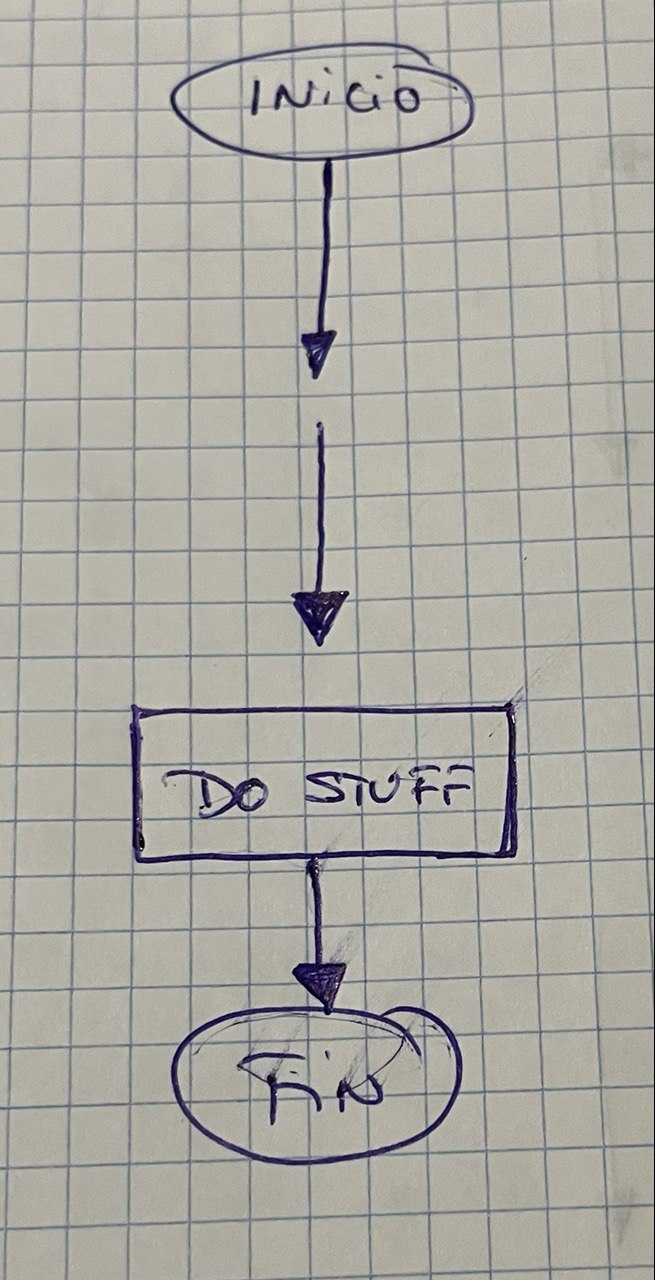 INiCiO
DO STUFF
FiN